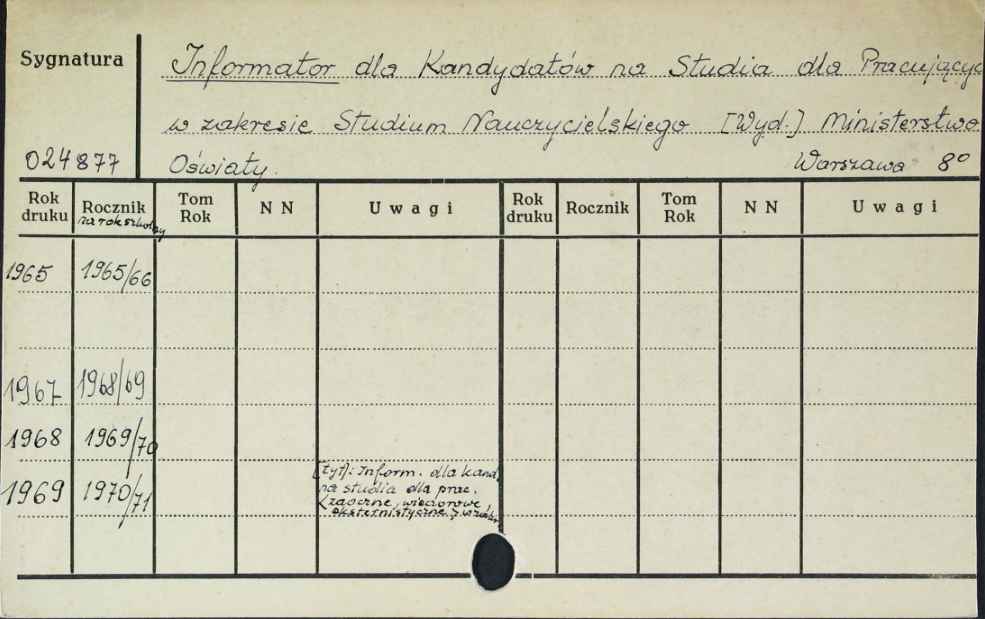 Sygnatura
Informator dla Kandydatów na Studia dla Pracujący
w zakresie Studium Nauczycielskiego [Wyd.] Ministerstwo
024877 Oświaty. Warszawa 8°
Rok druku Rocznik na rok szkolny Tom Rok N N Uwagi Rok druku Rocznik Tom Rok N N Uwagi
1965 1965/66
1967 1968/69
1968 1969/70
1969 1970/71
[tyt]: Inform. dla kand.
na studia dla prac.
<zaoczne, wieczorowe
eksternistyczne>